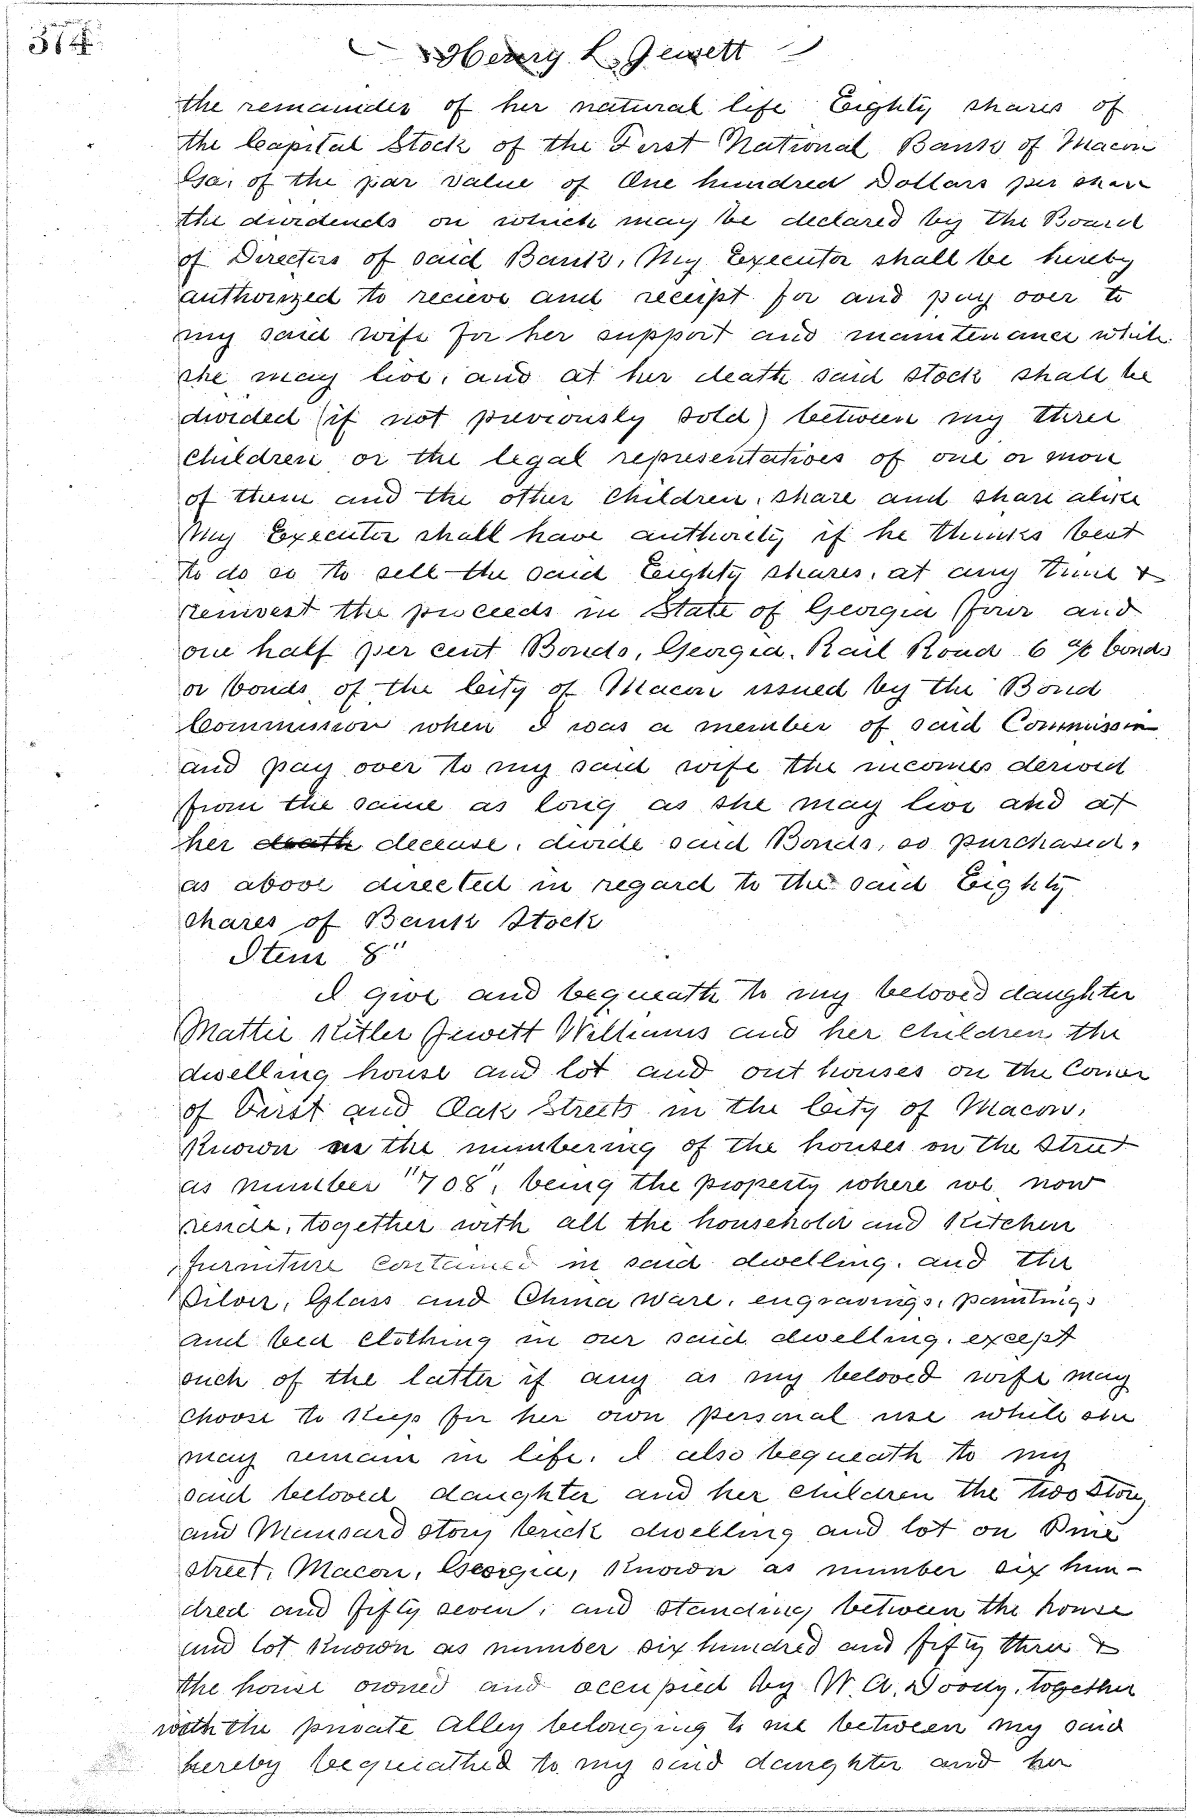 374
Henry L. Jewett
the remainder of her natural life Eighty shares of
the Capital Stock of the First National Bank of Macon
Ga, of the par value of One hundred Dollars per share
the dividends on which may be declared by the Board
of Directors of said Bank, My Executor shall be hereby
authorized to recieve and receipt for and pay over to
my said wife for her support and maintenance while
she may live, and at her death said stock shall be
divided (if not previously sold) between my three
children or the legal representatives of one or more
of them and the other children, share and share alike
My Executor shall have authority if he thinks best
to do so to sell the said Eighty shares, at any time &
reinvest the proceeds in State of Georgia four and
one half per cent Bonds, Georgia. Rail Road 6 % bonds
or bonds of the City of Macon issued by the Bond
Commission when I was a member of said Commission
and pay over to my said wife the incomes derived
from the same as long as she may live and at
her death decease, divide said Bonds, so purchased,
as above directed in regard to the said Eighty
shares of Bank Stock
Item 8"
I give and bequeath to my beloved daughter
Mattie Kitler Jewett Williams and her children the
dwelling house and lot and out houses on the Corner
of First and Oak Streets in the City of Macon,
Known in the numbering of the houses on the Street
as number "708", being the property where we now
reside, together with all the household and Kitchen
furniture contained in said dwelling, and the
Silver, Glass and China ware, engravings, paintings
and bed clothing in our said dwelling, except
such of the latter if any as my beloved wife may
choose to Keep for her own personal use while she
may remain in life. I also bequeath to my
said beloved daughter and her children the two Story
and Mansard story brick dwelling and lot on Pine
street, Macon, Georgia, Known as number six hun-
dred and fifty seven, and standing between the house
and lot Known as number six hundred and fifty three &
the house owned and occupied by W. A. Doody, together
with the private Alley belonging to me between my said
hereby bequeathed to my said daughter and her